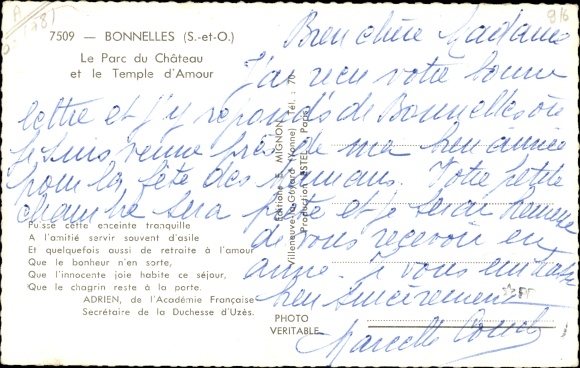 7509 — BONNELLES (S.-et-O.)
Le Parc du Château
et le Temple d'Amour
9/6
Bien chère Madame
J'ai reçu votre bonne
lettre et j'y réponds de Bonnelles où
je suis venue près de ma bien aimée
pour la fête des mamans. Votre petite
chambre sera prête et je serai heureuse
de vous recevoir en
amie. Je vous embrasse
bien sincèrement
Marcelle
Puisse cette enceinte tranquille
A l'amitié servir souvent d'asile
Et quelquefois aussi de retraite à l'amour
Que le bonheur n'en sorte,
Que l'innocente joie habite ce séjour,
Que le chagrin reste à la porte.
ADRIEN, de l'Académie Française
Secrétaire de la Duchesse d'Uzès.
Editions E. MIGNON
Villeneuve-la-Guyard (Yonne) Tél. : 70
Production ESTEL Paris
PHOTO
VERITABLE